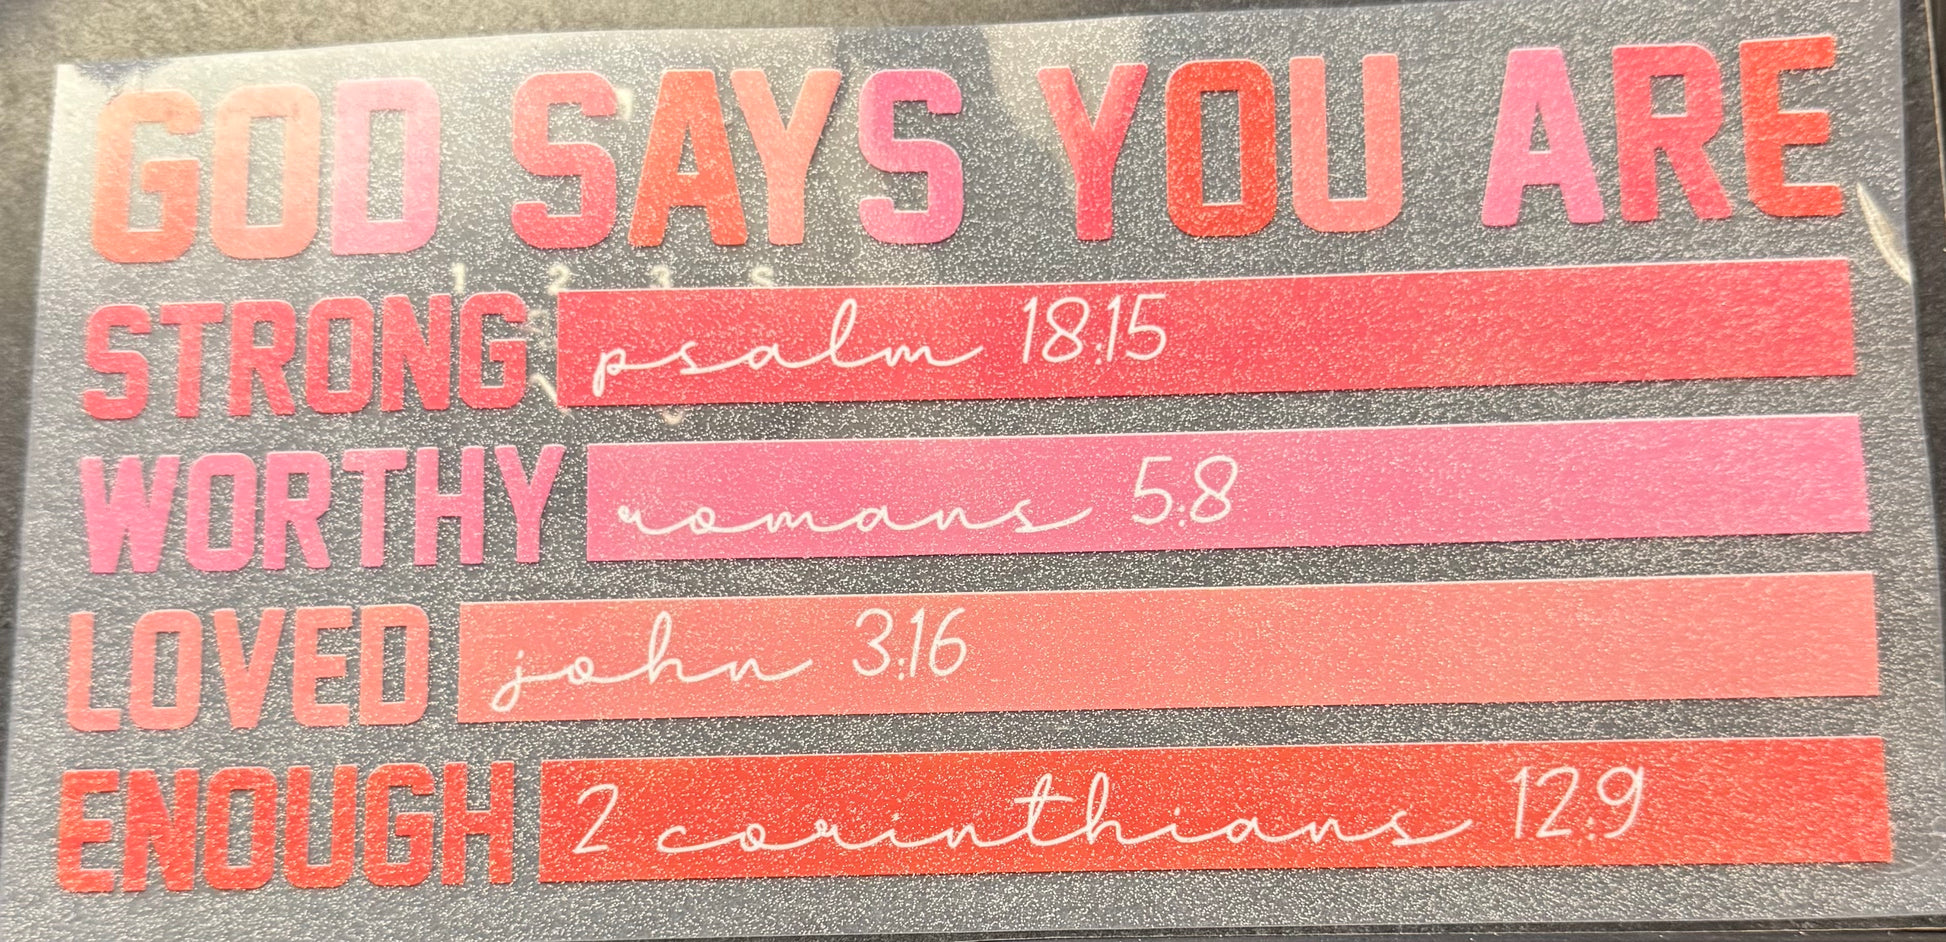 GOD SAYS YOU ARE
1 2 3 S
STRONG psalm 18:15
WORTHY romans 5:8
LOVED john 3:16
ENOUGH 2 corinthians 12:9